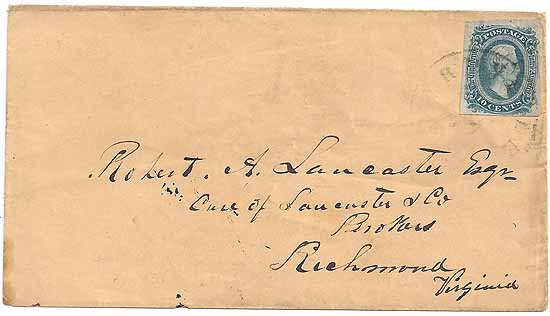 POSTAGE
10 CENTS
Robert. A. Lancaster Esqr
Care of Lancaster & Co
Brokers
Richmond
Virginia